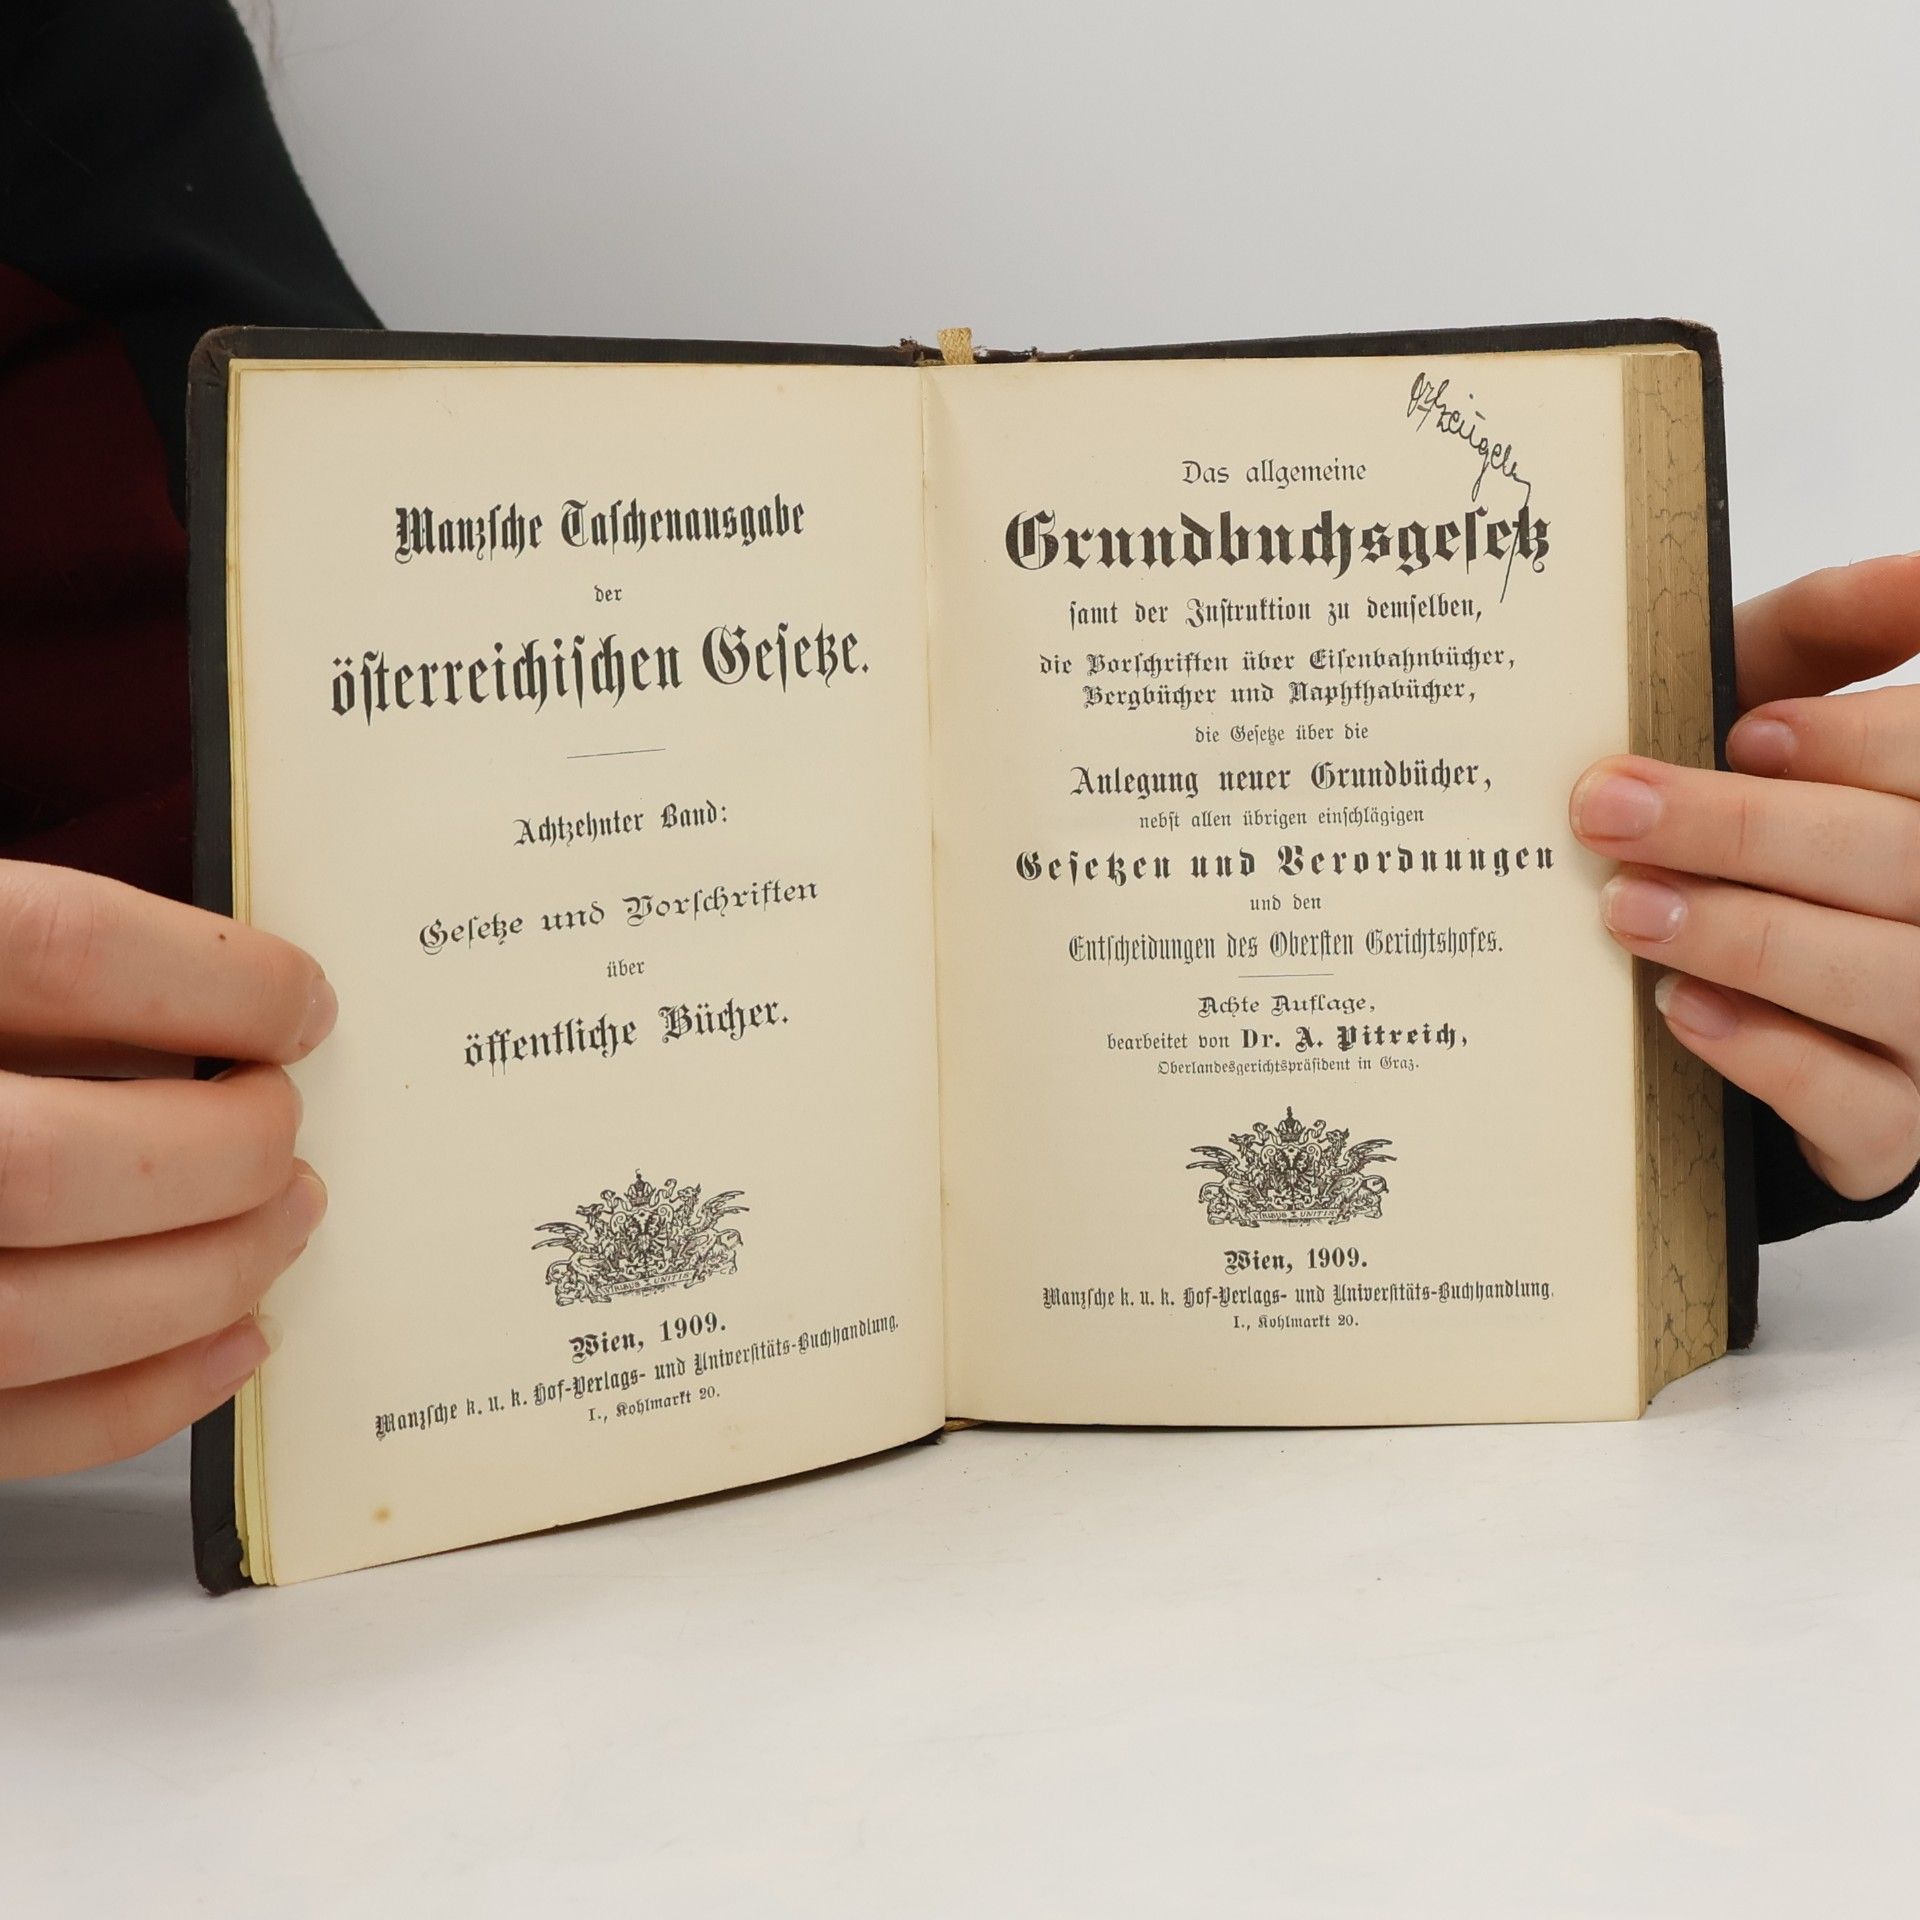 Manzſche Taſchenausgabe
der
öſterreichiſchen Geſetze.
Achtzehnter Band:
Geſetze und Vorſchriften
über
öffentliche Bücher.
VIRIBUS UNITIS
Wien, 1909.
Manzſche k. u. k. Hof-Verlags- und Univerſitäts-Buchhandlung.
I., Kohlmarkt 20.
Das allgemeine
Grundbuchsgeſetz
ſamt der Inſtruktion zu demſelben,
die Vorſchriften über Eiſenbahnbücher,
Bergbücher und Naphthabücher,
die Geſetze über die
Anlegung neuer Grundbücher,
nebſt allen übrigen einſchlägigen
Geſetzen und Verordnungen
und den
Entſcheidungen des Oberſten Gerichtshofes.
Achte Auflage,
bearbeitet von Dr. A. Pitreich,
Oberlandesgerichtspräſident in Graz.
VIRIBUS UNITIS
Wien, 1909.
Manzſche k. u. k. Hof-Verlags- und Univerſitäts-Buchhandlung.
I., Kohlmarkt 20.